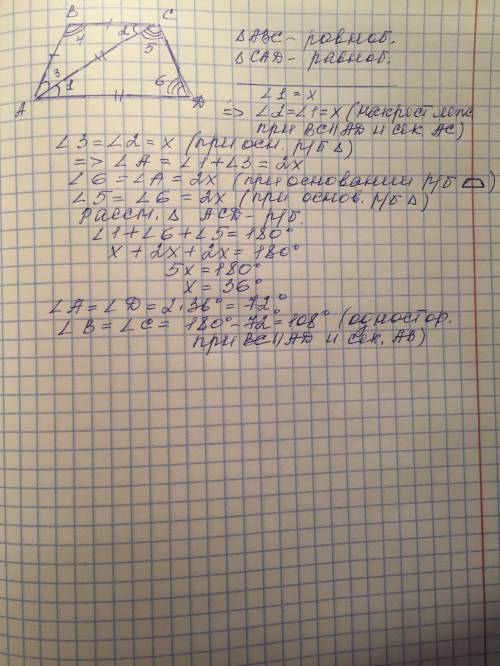 B C
4 2 5
3 1 6
A D
ΔABC - равноб.
ΔCAD - равноб.
∠1 = x
=> ∠2 = ∠1 = x (накрест леж.
при BC || AD и сек. AC)
∠3 = ∠2 = x (при осн. р/б Δ)
=> ∠A = ∠1 + ∠3 = 2x
∠6 = ∠A = 2x (при основании р/б ⏢)
∠5 = ∠6 = 2x (при основ. р/б Δ)
Рассм. Δ ACD - р/б.
∠1 + ∠6 + ∠5 = 180°
x + 2x + 2x = 180°
5x = 180°
x = 36°
∠A = ∠D = 2·36° = 72°
∠B = ∠C = 180° - 72° = 108° (одностор.
при BC || AD и сек. AB)